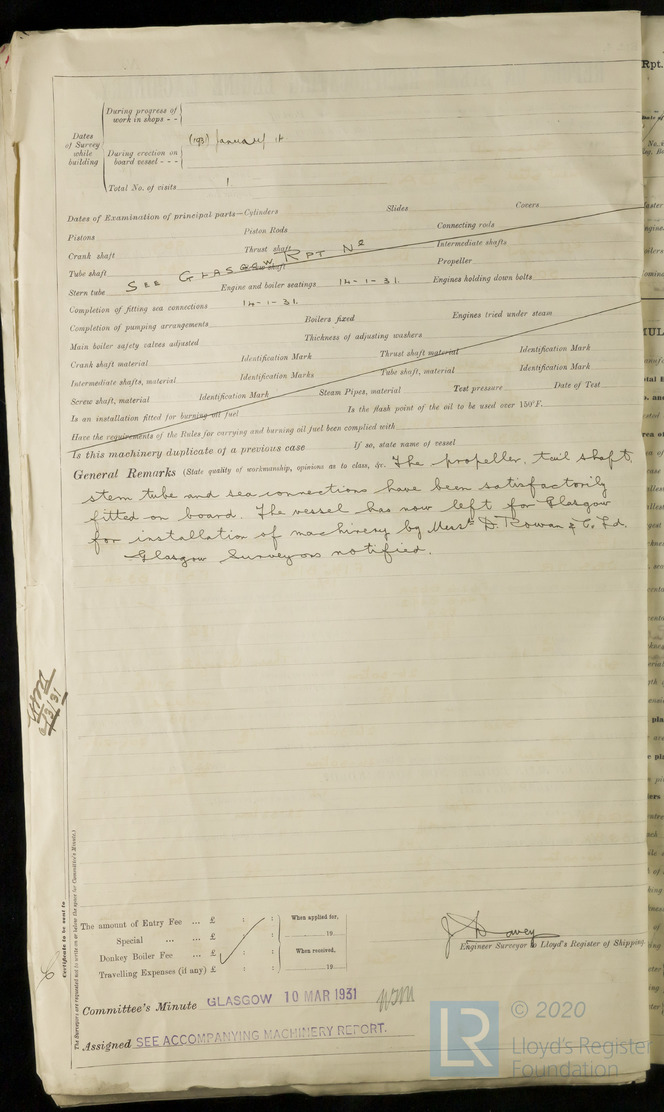 During progress of
work in shops - -
Dates
of Survey
while
building
(1931) January 14
During erection on
board vessel - - -
Total No. of visits 1
Dates of Examination of principal parts—Cylinders Slides Covers
Pistons Piston Rods Connecting rods
Crank shaft Thrust shaft Intermediate shafts
Tube shaft Screw shaft Propeller
SEE GLASGOW RPT Nº
Stern tube Engine and boiler seatings 14-1-31. Engines holding down bolts
Completion of fitting sea connections 14-1-31.
Completion of pumping arrangements Boilers fixed Engines tried under steam
Main boiler safety valves adjusted Thickness of adjusting washers
Crank shaft material Identification Mark Thrust shaft material Identification Mark
Intermediate shafts, material Identification Marks Tube shaft, material Identification Mark
Screw shaft, material Identification Mark Steam Pipes, material Test pressure Date of Test
Is an installation fitted for burning oil fuel Is the flash point of the oil to be used over 150°F.
Have the requirements of the Rules for carrying and burning oil fuel been complied with
Is this machinery duplicate of a previous case If so, state name of vessel
General Remarks (State quality of workmanship, opinions as to class, &c. The propeller, tail shaft,
stern tube and sea connections have been satisfactorily
fitted on board. The vessel has now left for Glasgow
for installation of machinery by Messrs D. Rowan & Co. Ld.
Glasgow Surveyors notified.
Certificate to be sent to
The Surveyors are requested not to write on or below the space for Committee's Minute.)
The amount of Entry Fee ... £ : : When applied for,
Special ... ... £ : : 19
Donkey Boiler Fee ... £ : : When received,
Travelling Expenses (if any) £ : : 19
J Davey
Engineer Surveyor to Lloyd's Register of Shipping.
Committee's Minute GLASGOW 10 MAR 1931
Assigned SEE ACCOMPANYING MACHINERY REPORT.
LR © 2020
Lloyd's Register
Foundation
Rpt.